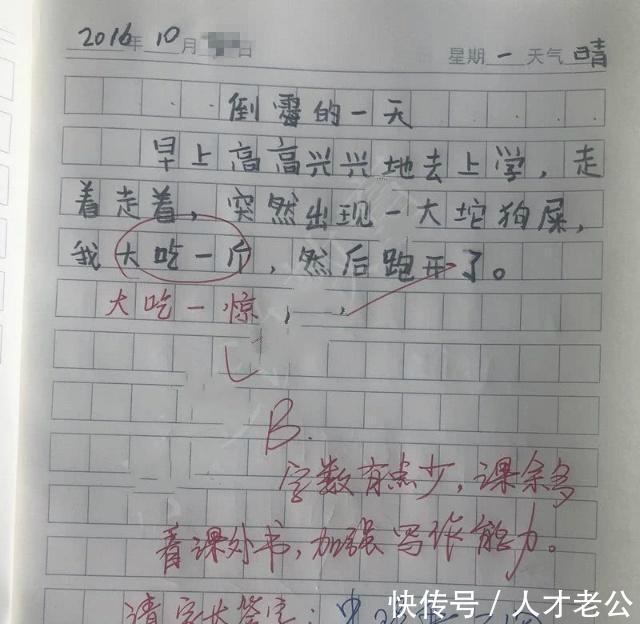 2016年10月 日
星期一天气晴
倒霉的一天
早上高高兴兴地去上学，走
着走着，突然出现一大坨狗屎，
我大吃一斤，然后跑开了。
大吃一惊
B.
字数有点少，课余多
看课外书，加强写作能力。
请家长签字：
快传号／人才老公